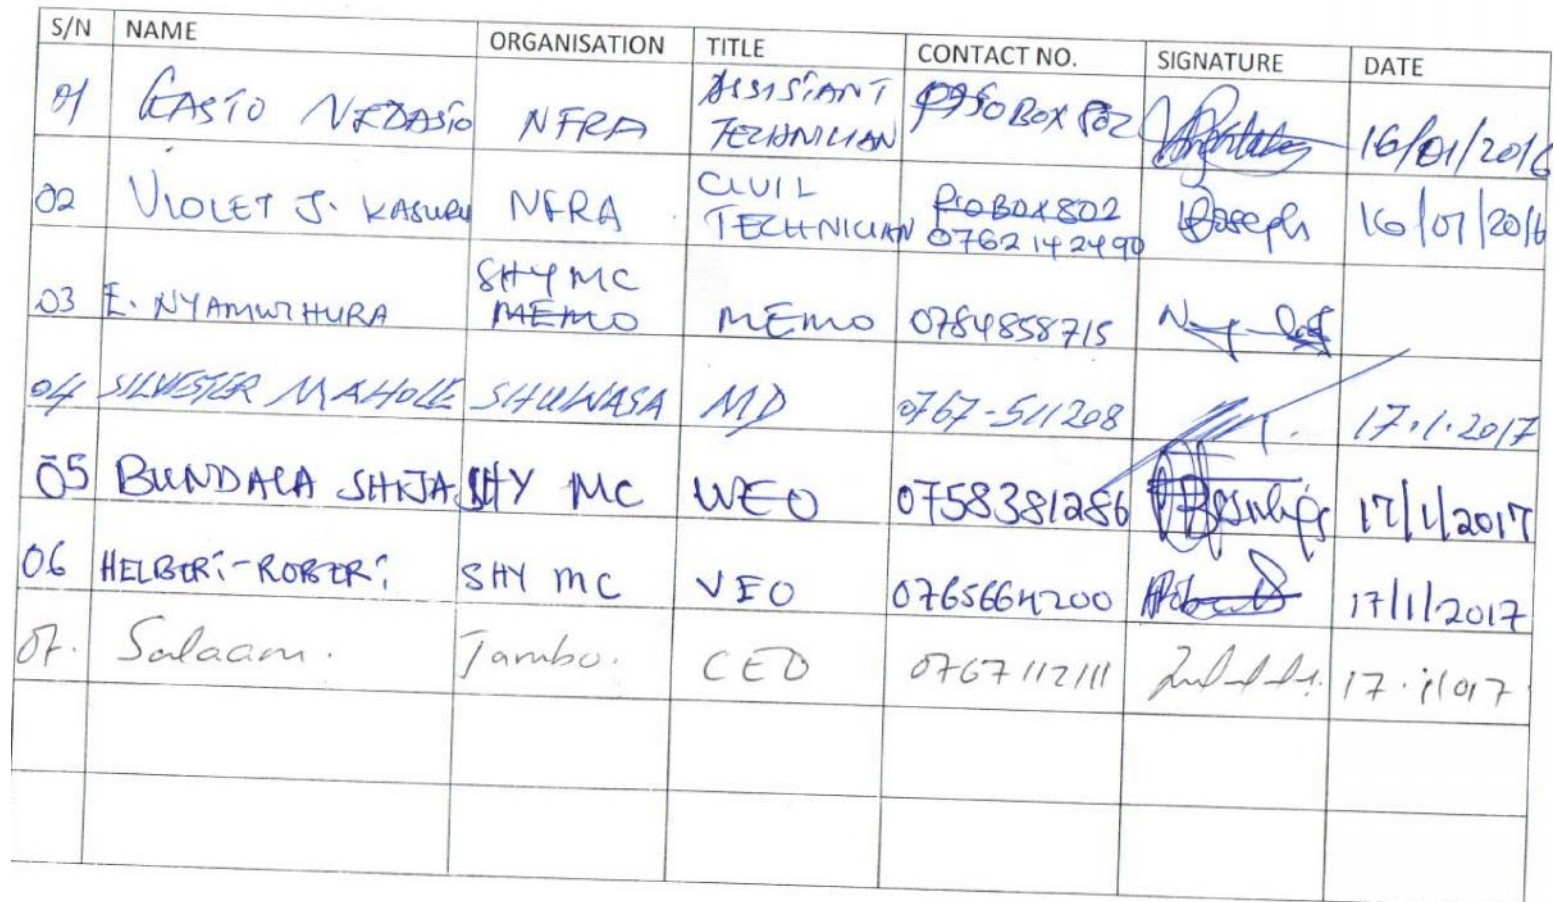 S/N NAME ORGANISATION TITLE CONTACT NO. SIGNATURE DATE
01 GASTO NEDASTO NFRA ASSISTANT TECHNICIAN BOX 802 16/01/2016
02 VIOLET J. KASURU NFRA CIVIL TECHNICIAN P.O BOX 802 0762142490 Joseph 16/01/2016
03 E. NYAMWIHURA SHY MC MEMO MEMO 0784858715
04 SILVESTER MAHOLE SHUWASA MD 0767-511208 17.1.2017
05 BUNDALA SHIJA SHY MC WEO 0758381286 17/1/2017
06 HELBERT-ROBERT SHY MC VEO 0765664200 17/1/2017
07. Salaam. Jambo. CEO 0767112111